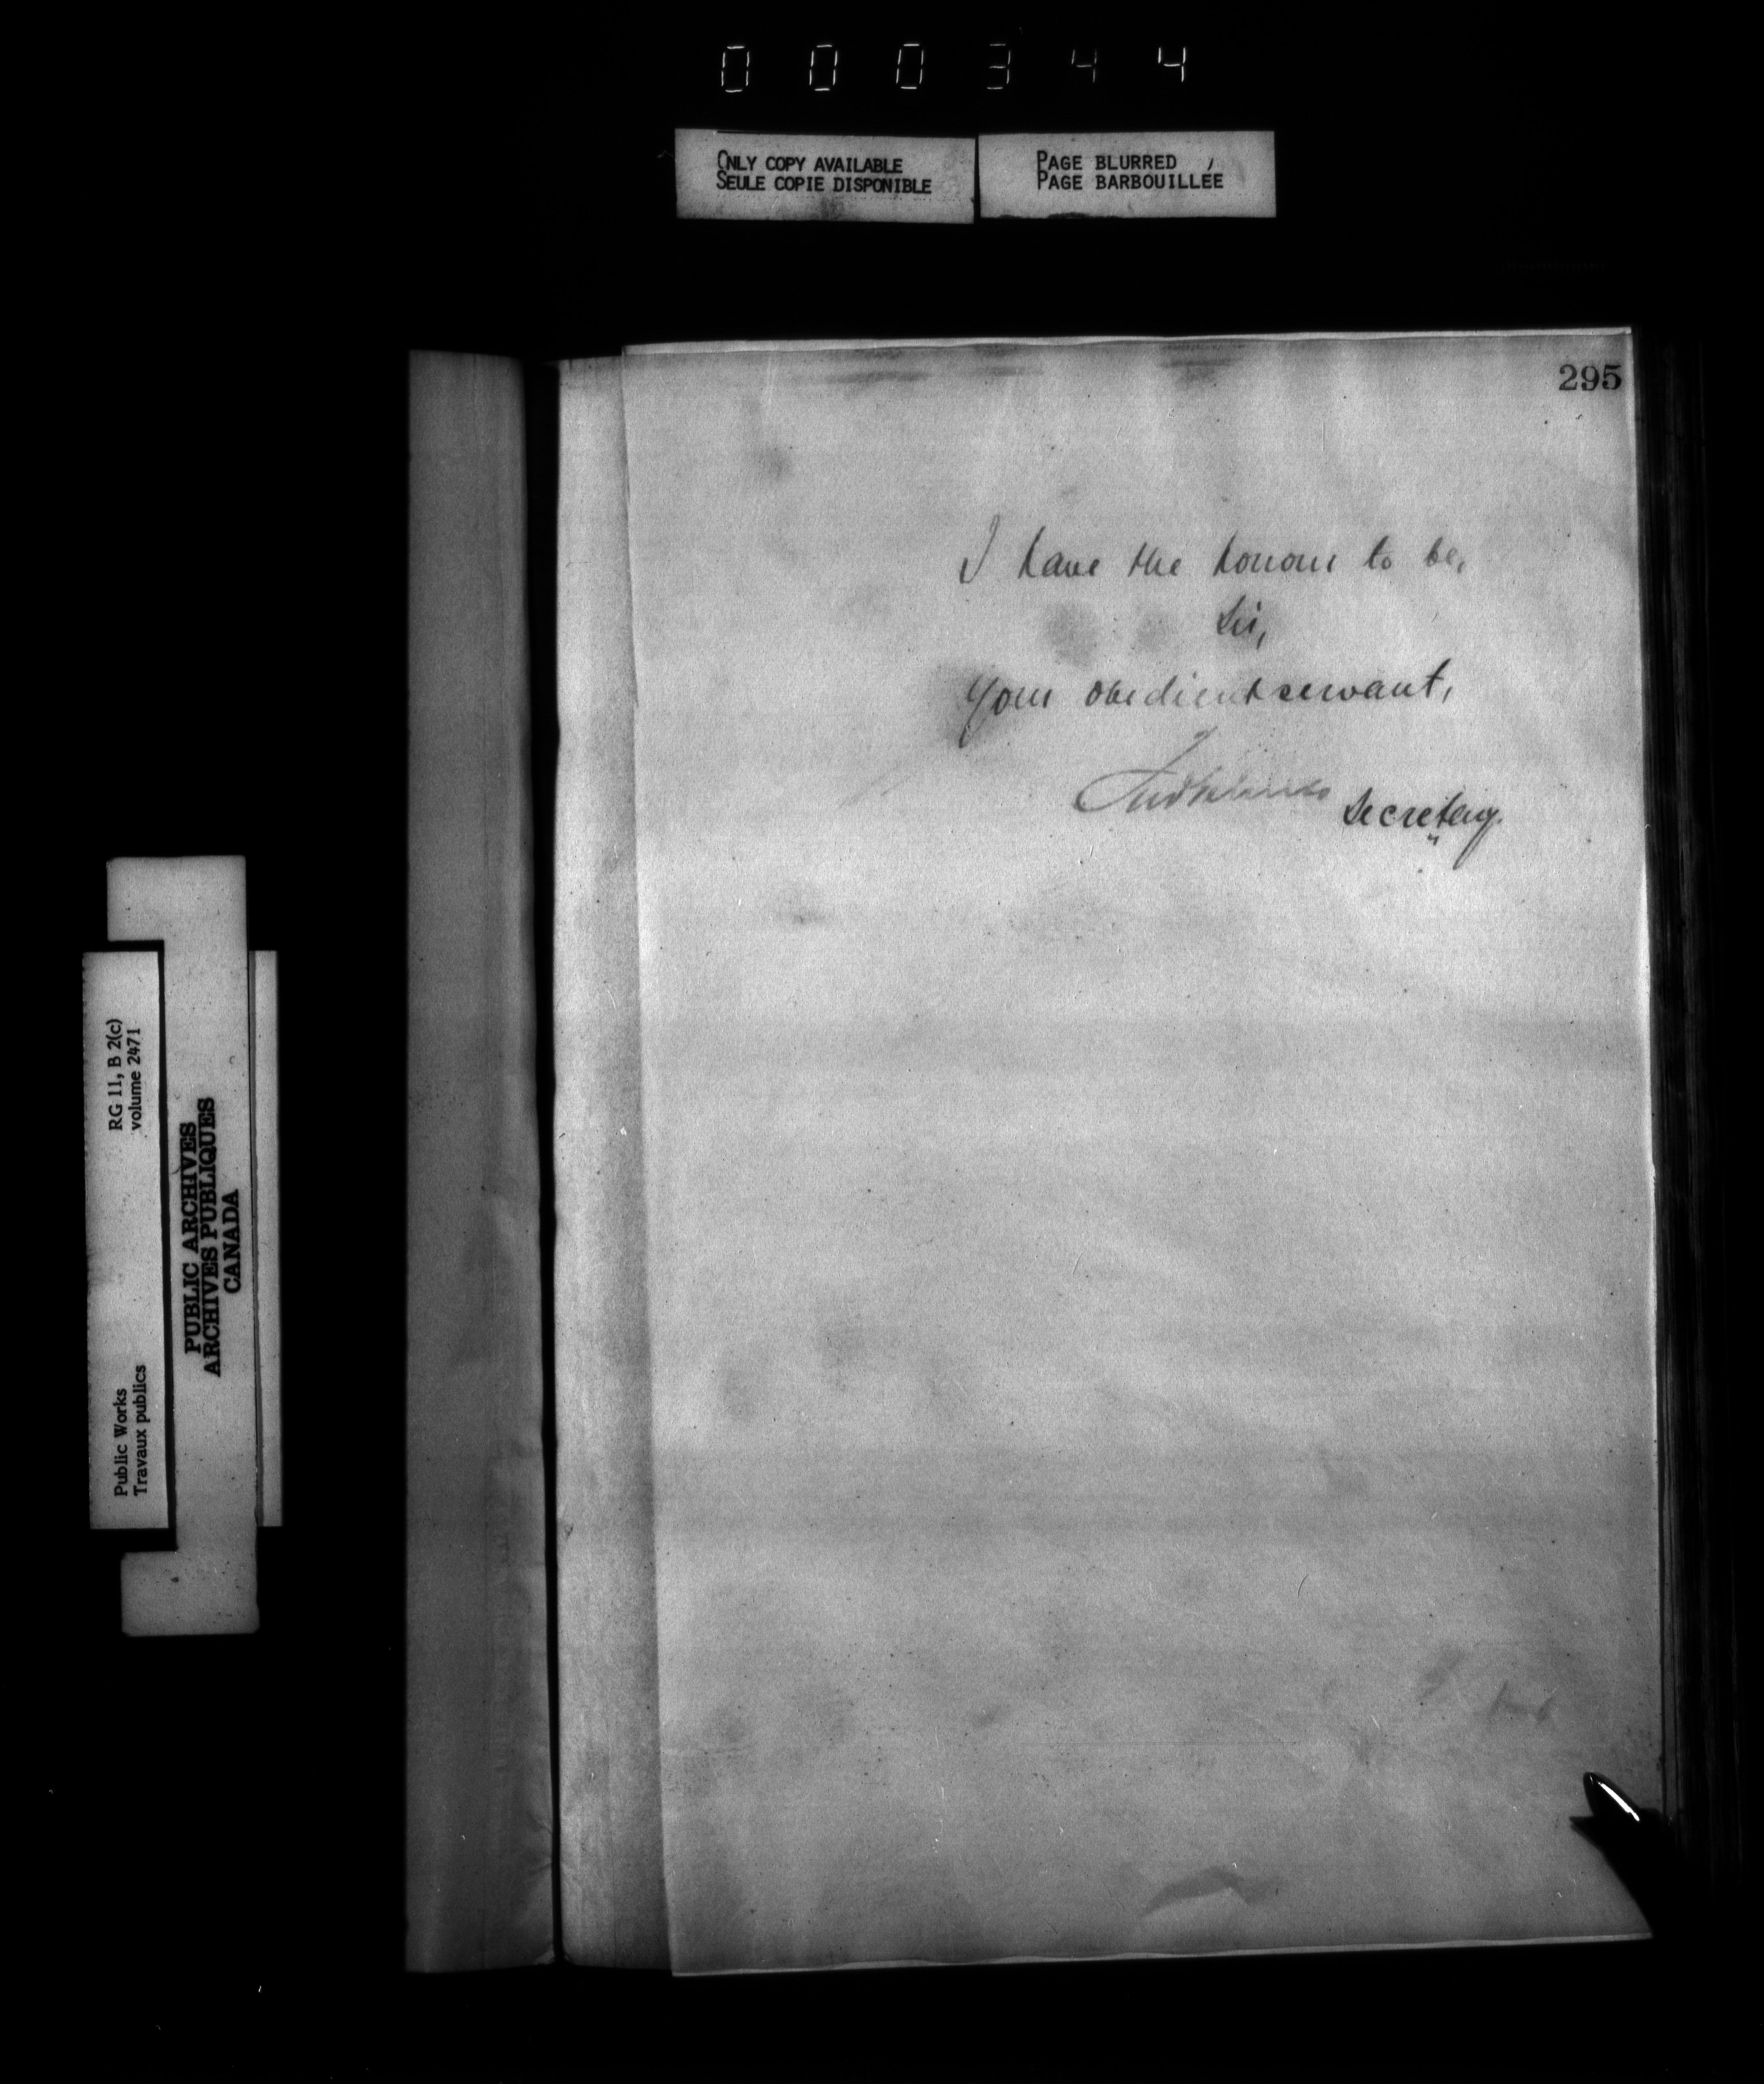 000344
ONLY COPY AVAILABLE
SEULE COPIE DISPONIBLE
PAGE BLURRED
PAGE BARBOUILLEE
295
I have the honour to be,
Sir,
Your obedient servant,
Secretary.
RG 11, B 2(c)
volume 2471
Public Works
Travaux publics
PUBLIC ARCHIVES
ARCHIVES PUBLIQUES
CANADA